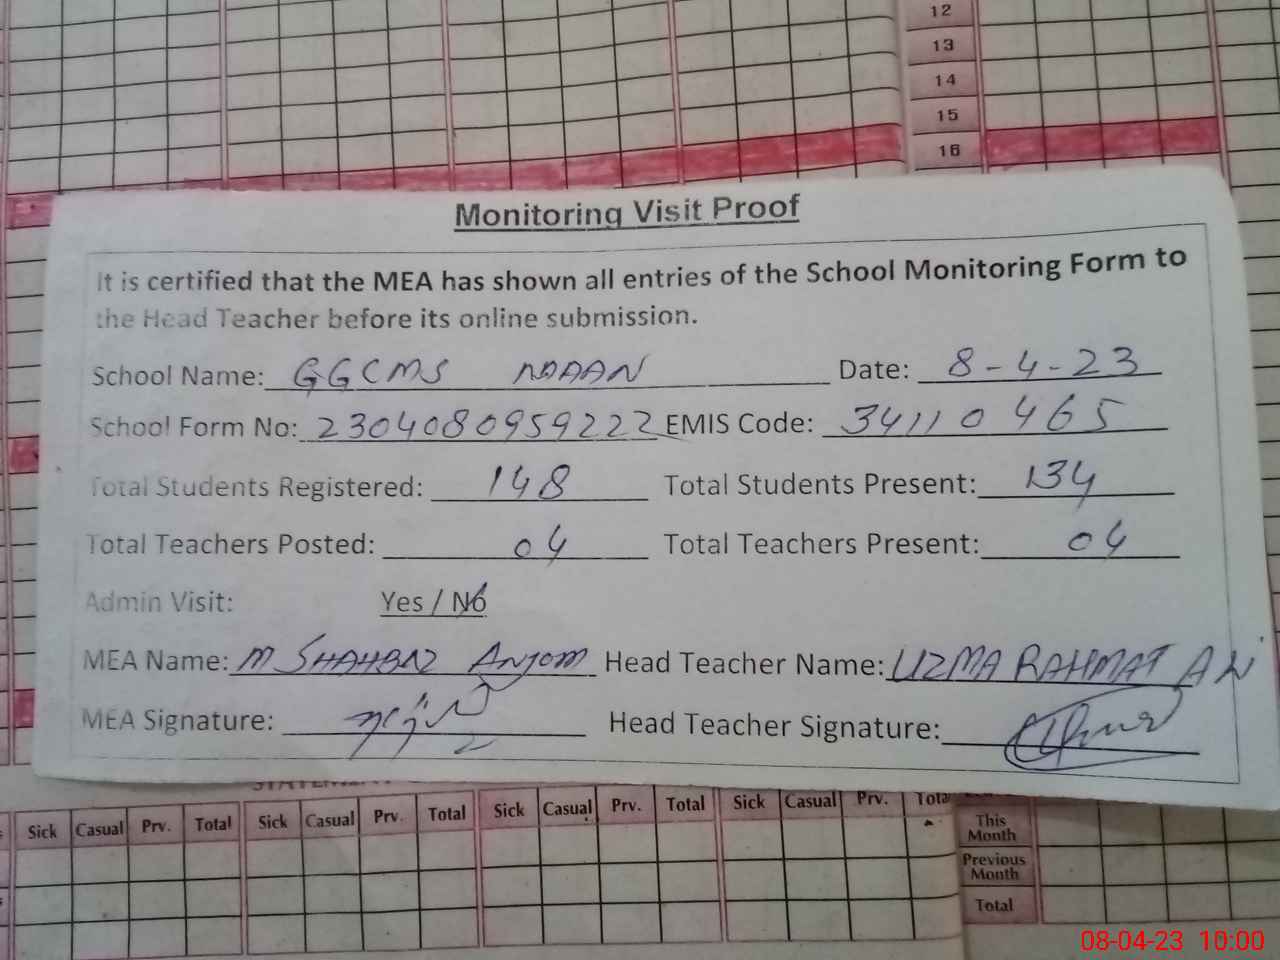 12
13
14
15
16
Monitoring Visit Proof
It is certified that the MEA has shown all entries of the School Monitoring Form to
the Head Teacher before its online submission.
School Name: GGCMS NAAAN Date: 8-4-23
School Form No: 230408095922 2 EMIS Code: 34110465
Total Students Registered: 148 Total Students Present: 134
Total Teachers Posted: 04 Total Teachers Present: 04
Admin Visit: Yes / No
MEA Name: M SHAHBAZ ANJOM Head Teacher Name: UZMA RAHMAT AN
MEA Signature: Head Teacher Signature:
Sick Casual Prv. Total Sick Casual Prv. Total Sick Casual Prv. Total Sick Casual Prv. Total
This Month
Previous Month
Total
08-04-23 10:00